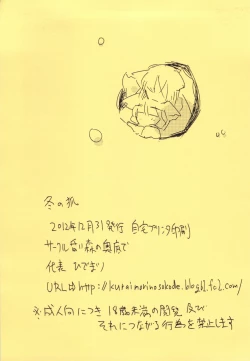 冬の狐
2012年12月31発行 自宅プリンタ印刷
サークル 暗い森の奥底で
代表 ひでまり
URLは http://kurainorinosokode.blog61.fc2.com/
※成人向につき 18歳未満の閲覧 及び
それにつながる行為を禁止します